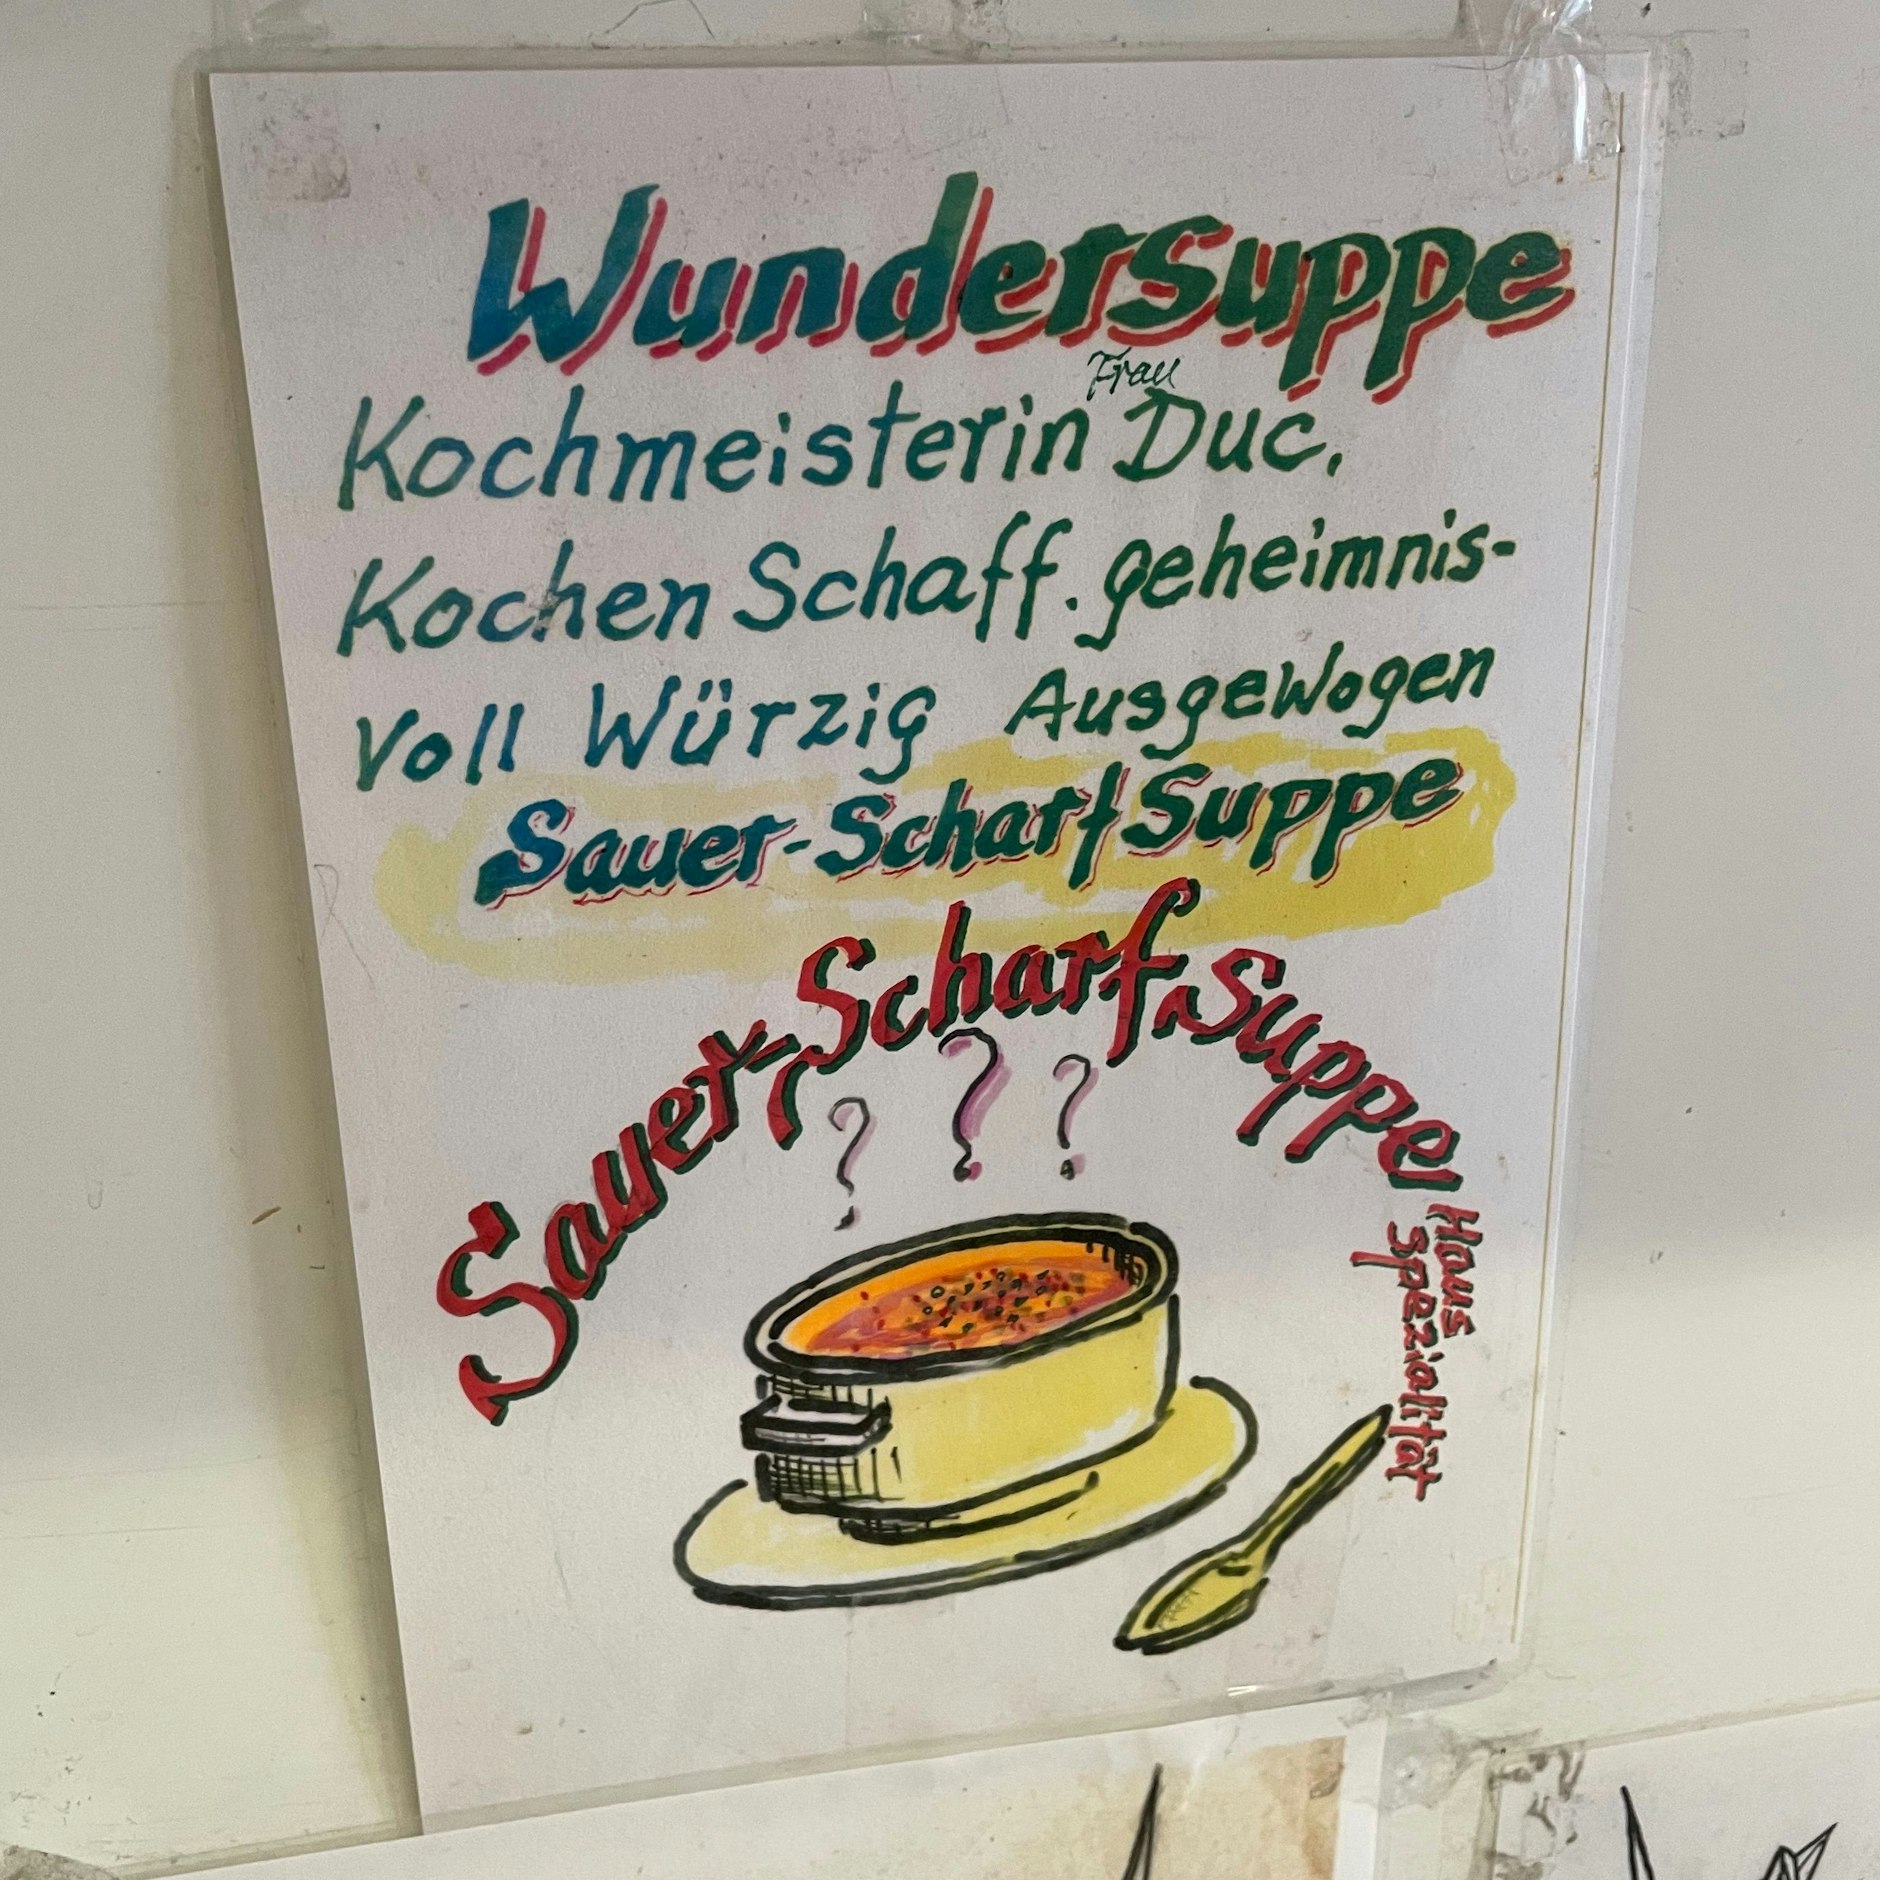 Wundersuppe
Frau
Kochmeisterin Duc.
Kochen Schaff. geheimnis-
voll Würzig Ausgewogen
Sauer-Scharf Suppe
Sauer-Scharf-Suppe
Haus
Spezialität
? ? ?